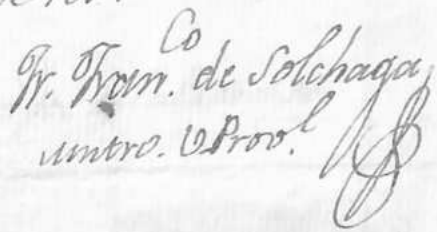 Fr. Fran.co de Solchaga
mntro. Prov.l